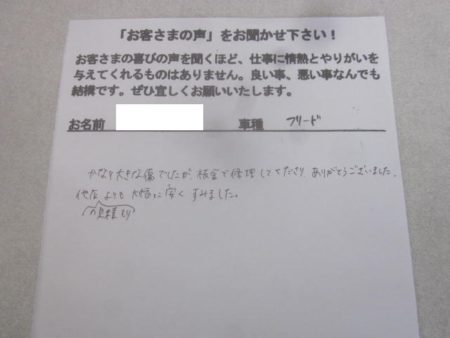 「お客さまの声」をお聞かせ下さい！
お客さまの喜びの声を聞くほど、仕事に情熱とやりがいを
与えてくれるものはありません。良い事、悪い事なんでも
結構です。ぜひ宜しくお願いいたします。
お名前 車種 フリード
かなり大きな傷でしたが、板金で修理してくださり ありがとうございました。
他店よりも 大幅に安く すみました。